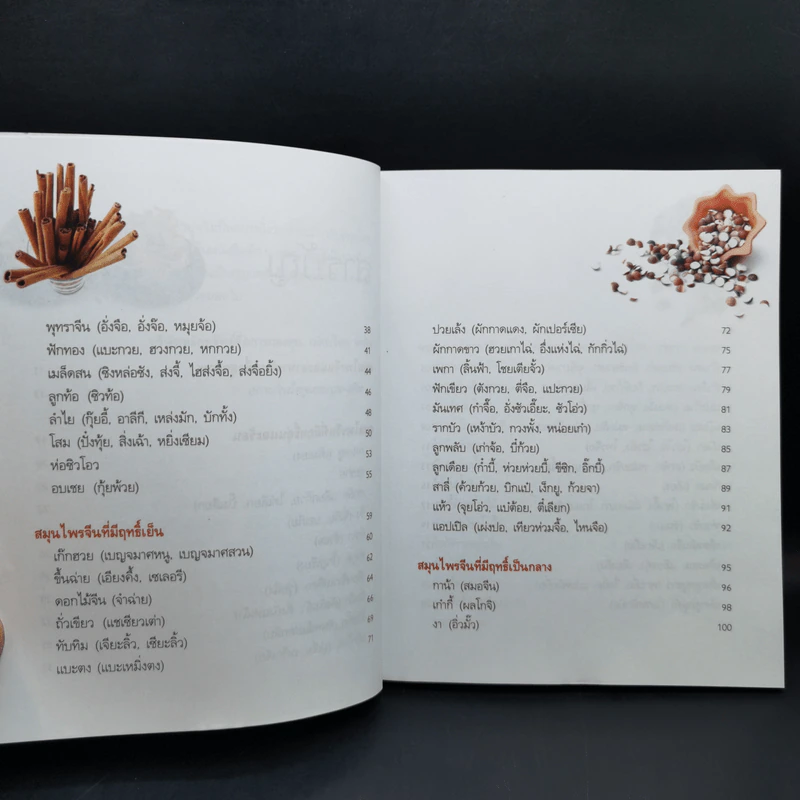 พุทราจีน (อั่งจือ, อั่งจ๊อ, หมุยจ้อ) 38
ฟักทอง (แบะกวย, ฮวงกวย, หกกวย) 41
เมล็ดสน (ชิงหล่อซัง, ส่งจี้, ไฮส่งจื้อ, ส่งจื่อยิ้ง) 44
ลูกท้อ (ซิวท้อ) 46
ลำไย (กุ๊ยอี้, อาลีกี, เหล่งมัก, บักทั้ง) 48
โสม (ปั่งทุ้ย, สิ่งเฉ้า, หยิ่งเซียม) 50
ห่อซิวโอว 53
อบเชย (กุ้ยพ้วย) 55
สมุนไพรจีนที่มีฤทธิ์เย็น 59
เก๊กฮวย (เบญจมาศหนู, เบญจมาศสวน) 60
ขึ้นฉ่าย (เอียงคึ้ง, เซเลอรี) 62
ดอกไม้จีน (จำฉ่าย) 64
ถั่วเขียว (แชเซียวเต่า) 66
ทับทิม (เจียะลิ้ว, เซียะลิ้ว) 69
แบะตง (แบะเหมิ่งตง) 71
ปวยเล้ง (ผักกาดแดง, ผักเปอร์เซีย) 72
ผักกาดขาว (ฮวยเกาไฉ่, อึ่งแห่งไฉ่, กักกิ่วไฉ่) 75
เพกา (ลิ้นฟ้า, โซยเตียจั้ว) 77
ฟักเขียว (ตังกวย, ตี่จือ, แปะกวย) 79
มันเทศ (กำจื๊อ, อั่งซัวเอี๊ยะ, ซัวโอ่ว) 81
รากบัว (เหง้าบัว, กวงพั้ง, หน่อยเก๋า) 83
ลูกพลับ (เก๋าจ้อ, บี่ก้วย) 85
ลูกเดือย (ก๋ำบี้, ห่วยห่วยบี้, ซีซิก, อิ๊กบี้) 87
สาลี่ (ค้วยก้วย, บิกแป๋, เง็กยู, ก้วยจา) 89
แห้ว (จุยโอ่ว, แบ่ต้อย, ตี่เลียก) 91
แอปเปิล (เผ่งปอ, เทียวห่วมจื้อ, ไหนจือ) 92
สมุนไพรจีนที่มีฤทธิ์เป็นกลาง 95
กาน้า (สมอจีน) 96
เก๋ากี้ (ผลโกจิ) 98
งา (อิ่วมั้ว) 100